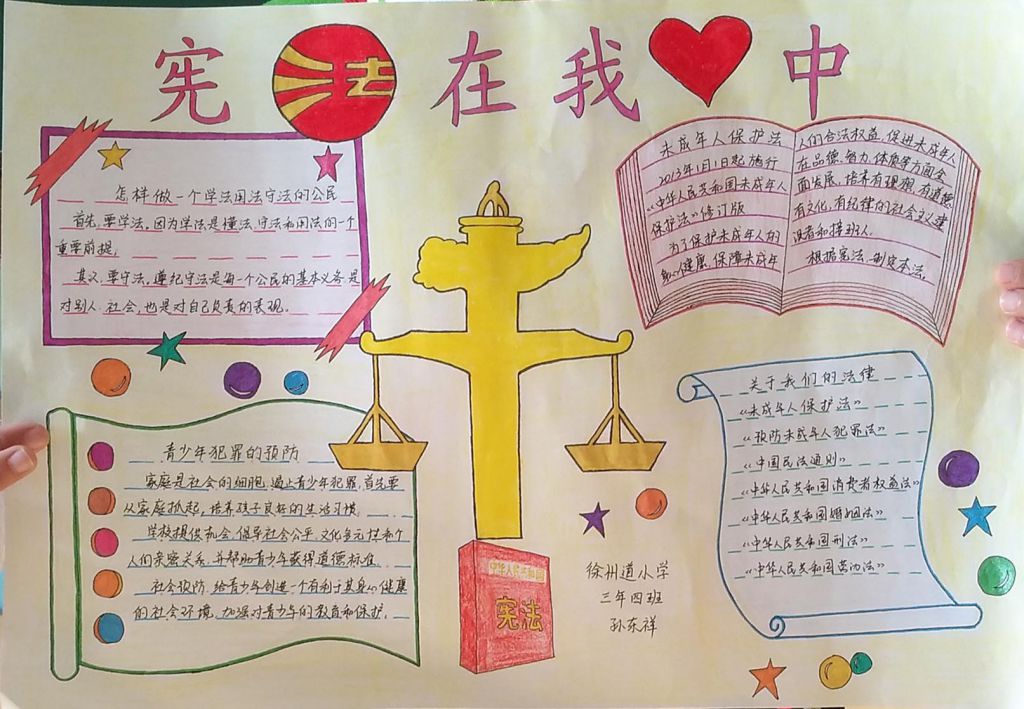 宪法在我中
怎样做一个学法用法守法的公民
首先,要学法,因为学法是懂法、守法和用法的一个
重要前提,
其次,要守法,遵纪守法是每一个公民的基本义务,是
对别人、社会,也是对自己负责的表现。
未成年人保护法
2013年1月1日起施行
《中华人民共和国未成年人
保护法》修订版
为了保护未成年人的
身心健康,保障未成年
人的合法权益,促进未成年人
在品德、智力、体质等方面全
面发展,培养有理想、有道德、
有文化、有纪律的社会主义建
设者和接班人,
根据宪法,制定本法。
青少年犯罪的预防
家庭是社会的细胞,遏止青少年犯罪,首先要
从家庭抓起,培养孩子良好的生活习惯。
学校提供机会,倡导社会公平、文化多元性和个
人的亲密关系,并帮助青少年获得道德标准。
社会预防,给青少年创造一个有利于其身心健康
的社会环境,加强对青少年的教育和保护。
关于我们的法律
《未成年人保护法》
《预防未成年人犯罪法》
《中国民法通则》
《中华人民共和国消费者权益法》
《中华人民共和国婚姻法》
《中华人民共和国刑法》
《中华人民共和国劳动法》
中华人民共和国
宪法
徐州道小学
三年四班
孙东祥